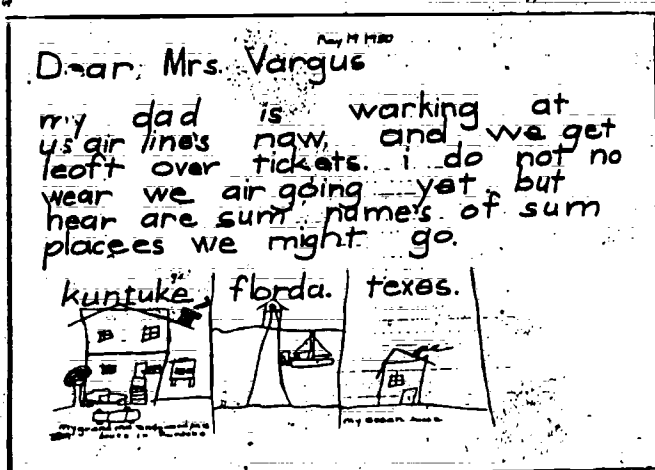 May 19 1980
Dear, Mrs. Vargus
my dad is warking at
us air line's naw, and we get
leoft over tickets. i do not no
wear we air going yet. but
hear are sum name's of sum
placees we might go.
kuntuke florda. texas.
my grand ma and grand pa's
house in kuntuke
my house